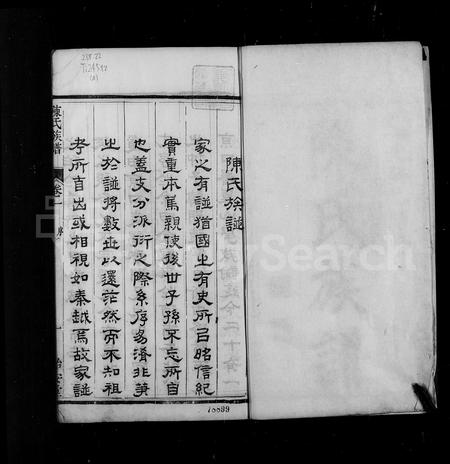 陳氏族譜
家之有譜猶國之有史所㠯昭信紀
實重本篤親使後世子孫不忘所自
也蓋支分派衍之際系序易淆非筆
之於譜將數世以還茫然而不知祖
考所自出或相視如秦越焉故家譜
陳氏族譜
卷一
序
一
FamilySearch
16899